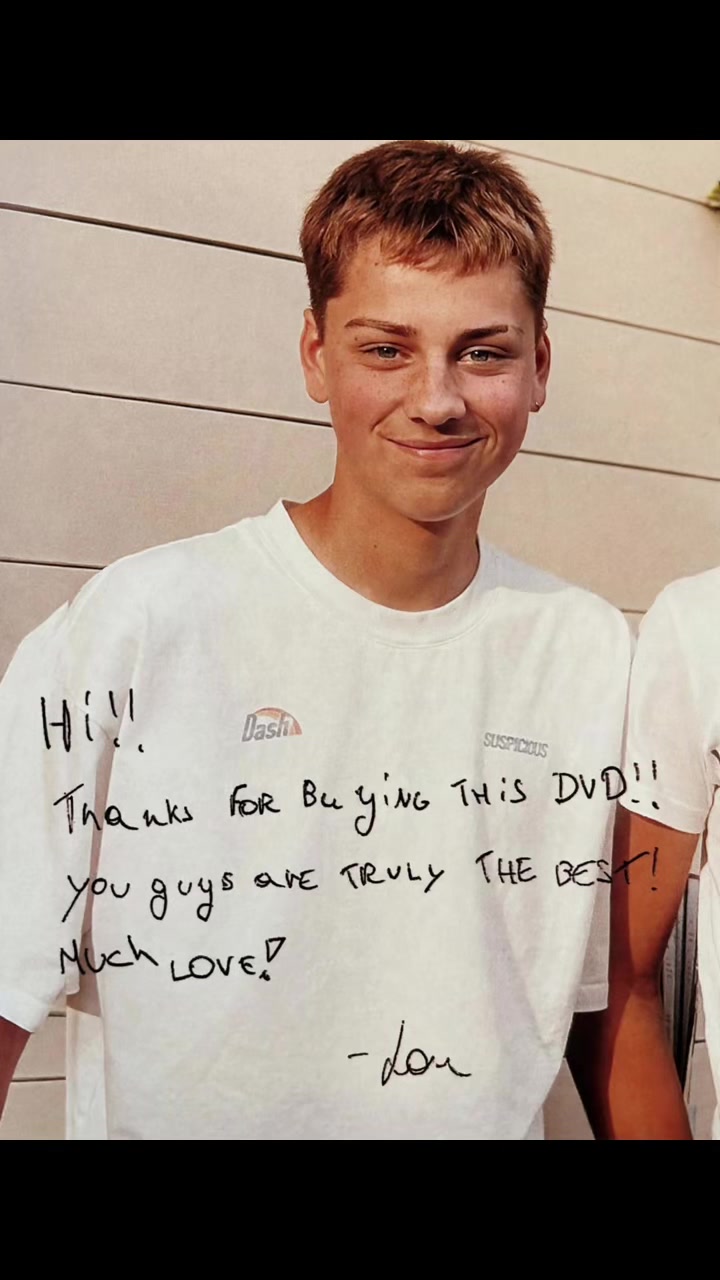 Dash
SUSPICIOUS
Hi!!
Thanks FOR BuyiNG THiS DVD!!
you guys are TRULY THE BEST!
Much LOVE!
- Lou